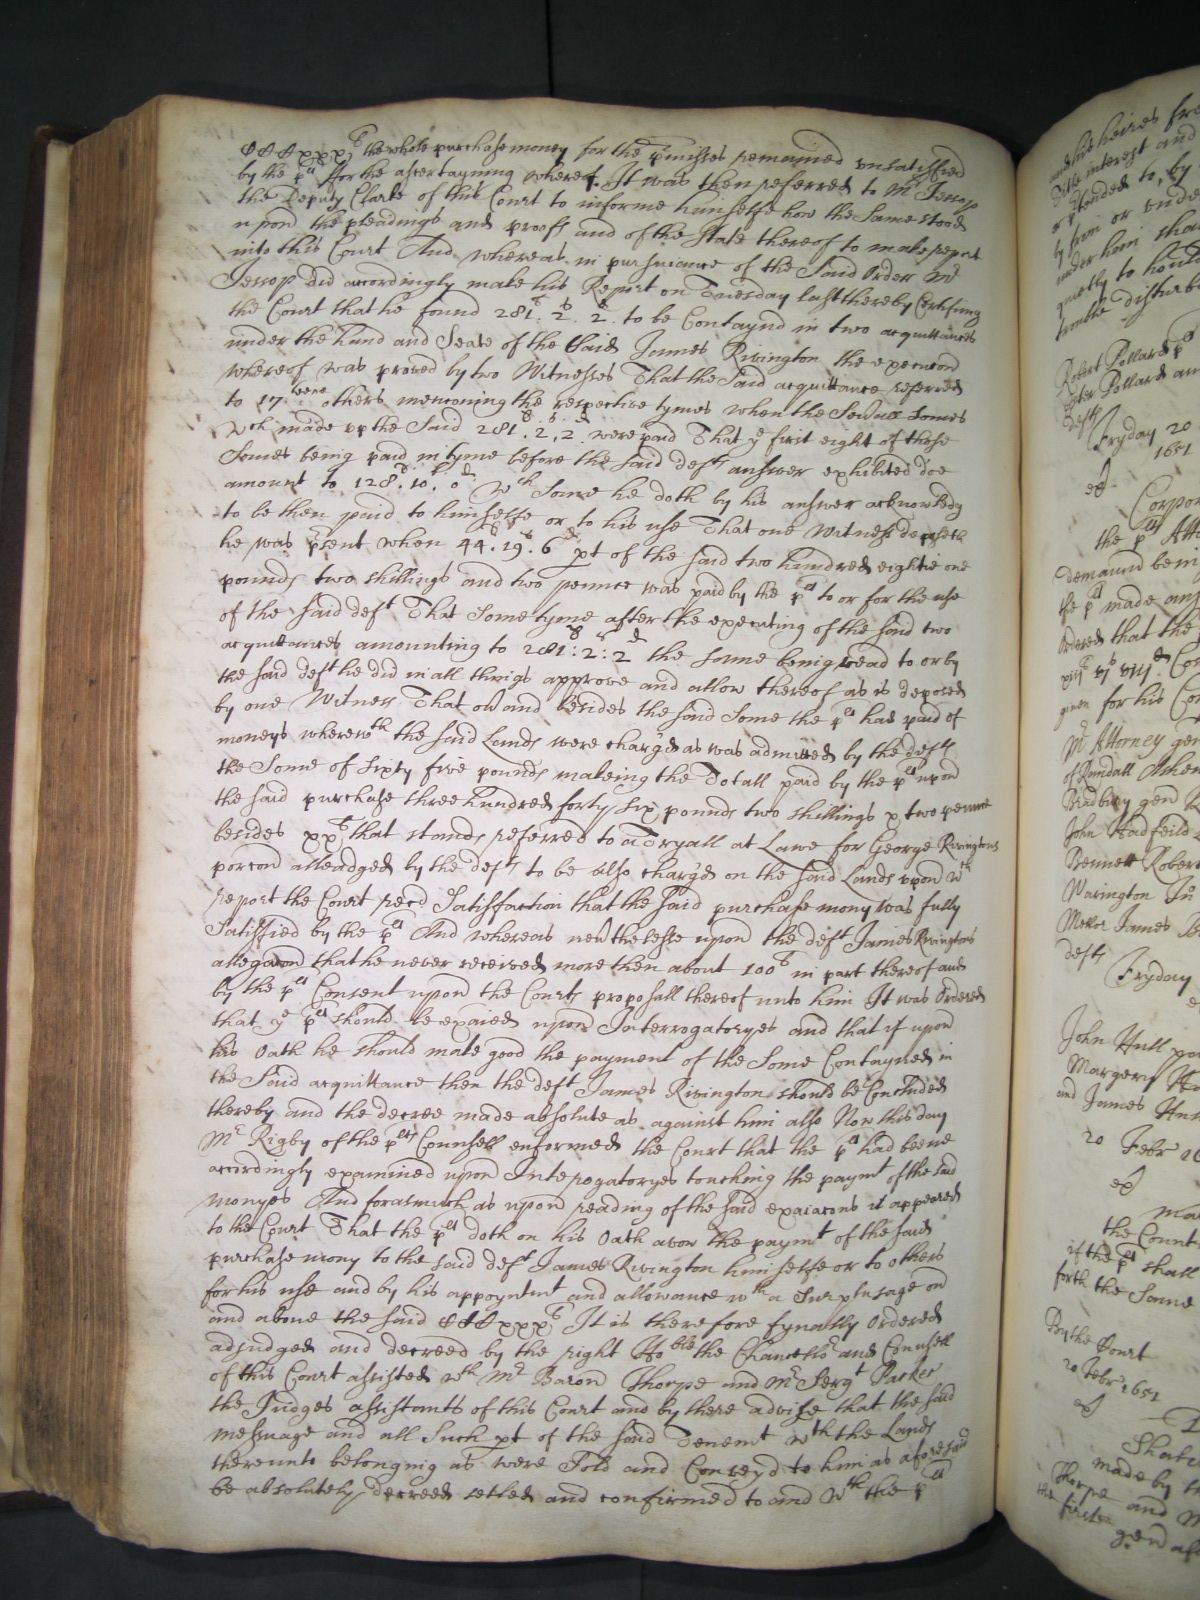 CCCxxx li the whole purchase money for the p'misses remained vnsatisfied
by the p lt ffor the ascertayning whereof. It was then referred to Mr Jessop
the Deputy Clarke of this Court to informe himselfe how the same stood
vpon the pleadings and proofs and of the State thereof to make report
into this Court And whereas in pursuance of the said Order Mr
Jessop did accordingly make his Report on Tuesday last thereby Certifiing
the Court that he found 281 li. 2 s. 2 d. to be Contaynd in two acquittances
under the hand and Seale of the said James Rivington the execucon
whereof was proved by two Witnesses That the said acquittance referred
to 17 teene others menconing the respective tymes when the Severall Somes
wch made vp the said 281 li. 2 s. 2 d. were paid That ye first eight of those
Somes being paid in tyme before the said defts answer exhibited doe
amount to 128 li. 10 s. 0 d wch Some he doth by his answer acknowledg
to be then paid to himselfe or to his use That one Witness deposeth
he was p'sent when 44 li. 19 s. 6 d pt of the said two hundred eightie one
pounds two shillings and two pennce was paid by the p lt to or for the use
of the said deft That Some tyme after the executing of the said two
acquittances amounting to 281 li: 2 s: 2 d the same being read to or by
the said deft he did in all things approve and allow thereof as is deposed
by one Witness That and besides the said Some the p lt had paid of
moneys wherewth the said Lands were charg'd as was admitted by the defts
the Some of sixty five pounds makeing the Totall paid by the p lt upon
the said purchase three hundred forty six pounds two shillings & two pennce
besides xx li that stands referred to a Tryall at Lawe for George Rivingtons
porcon alleadged by the defts to be also charg'd on the said Lands vpon wch
report the Court recd Satisfaction that the said purchase mony was fully
Satisfied by the p lt And whereas nevthelesse upon the deft James Rivingtons
allegacon that he never received more then about 100 li in part thereof and
by the p lts Consent upon the Courts proposall thereof unto him It was Ordered
that ye p lt should be exaied upon Interrogatoryes and that if upon
his Oath he should make good the payment of the Some Contayned in
the said acquittance then the deft James Rivington should be Concluded
thereby and the decree made absolute as against him also Now this day
Mr Rigby of the p lts Counsell enformed the Court that the p lt had beene
accordingly examined upon Interogatoryes touching the paymt of the said
monyes And forasmuch as upon reading of the said exaiacons it appeared
to the Court That the p lt doth on his Oath avow the paymt of the said
purchase mony to the said deft James Rivington himselfe or to others
for his use and by his appoyntmt and allowance wth a Surplusage on
and above the said CCCxxx li It is therefore fynally Ordered
adjudged and decreed by the right Ho ble the Chancellor and Counsell
of this Court assisted wth Mr Baron Thorpe and Mr Sergt Parker
the Judges assistants of this Court and by there advise that the said
messuage and all Such pt of the said Tenemt wth the Lands
thereunto belonging as were Sold and Convey'd to him as aforesaid
be absolutely decreed setled and confirmed to and wth the p lt
Robert Pollard p lt
Peter Pollard
defts
Fryday 20
1651
ex
the p lts
demaund
the p lt made
Ordered that the
given for his
Mr Attorney
of Rundall
Bradbury gen
John Hadfeild
Bennett Robert
Warington
Mellor James
defts
Fryday
John Hull
Margery
and James
20 Febr
ex
the
if the p lt shall
forth the Same
By the Court
20 Febr 1651
ex
made by
Thorpe and
the first